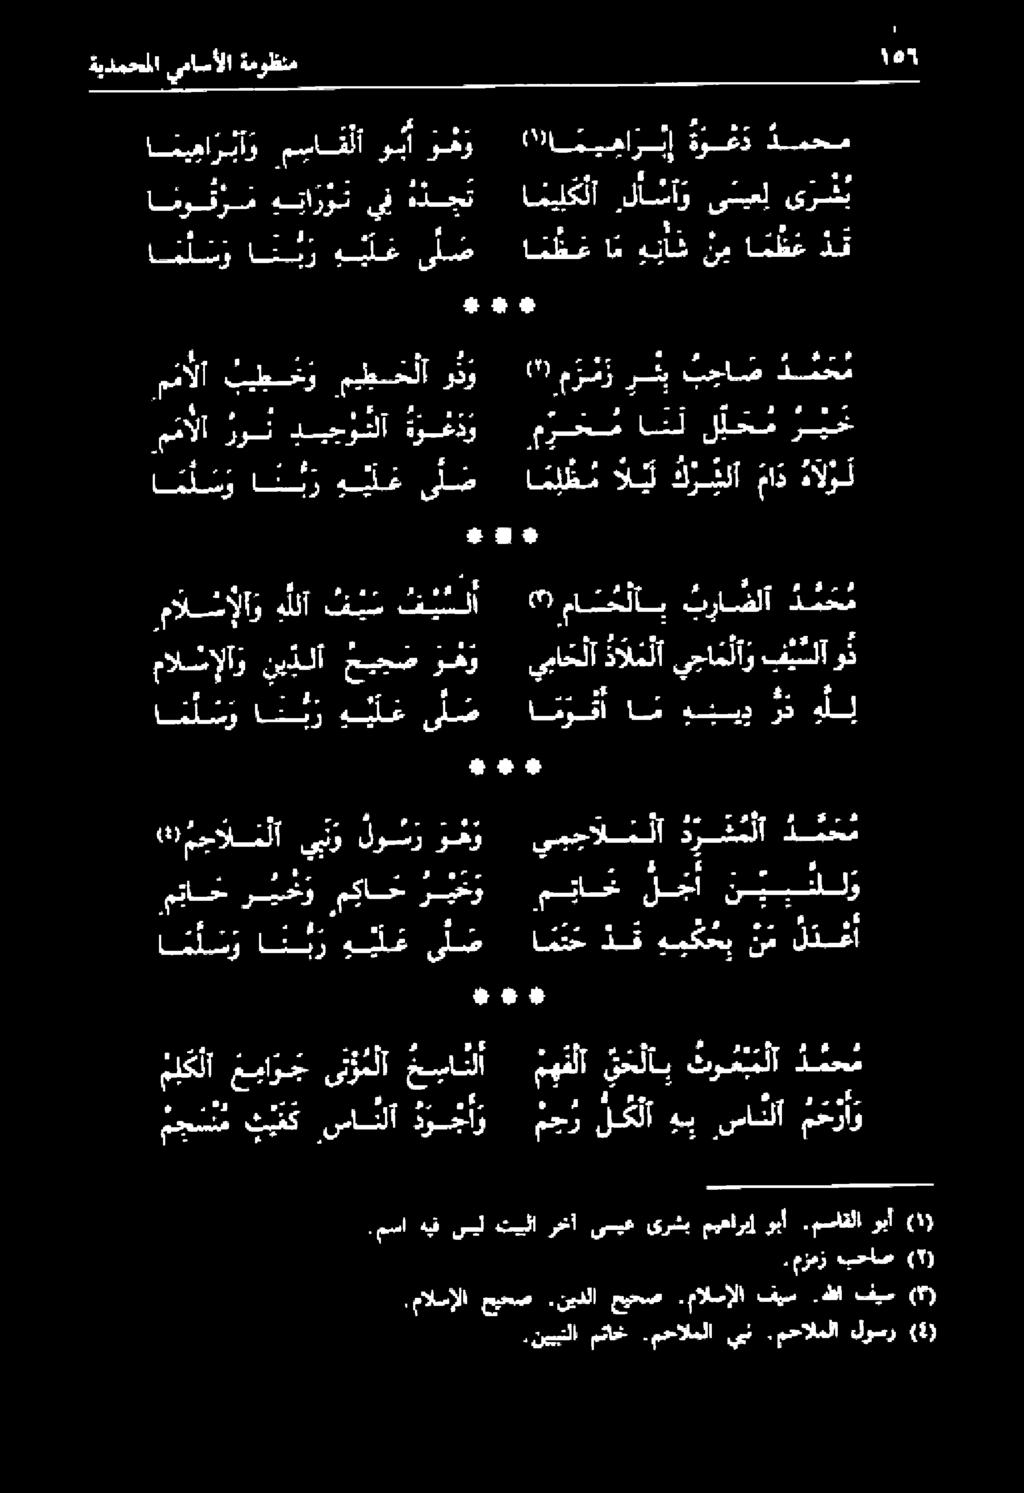 ١٥٦ منظومة الأسامي المحمدية
محمد دَعْوَةُ إِبْرَاهِيمَا(١) وَهْوَ أَبُو ٱلْقَاسِمِ وَآبْرَاهِيمَا
بُشْرَى لِعِيسَى وَٱسْأَلِ ٱلْكَلِيمَا تَجِدْهُ فِي تَوْرَاتِهِ مَرْقُومَا
قَدْ عَظَّمَا مِنْ شَأْنِهِ مَا عَظَّمَا صَلَّى عَلَيْهِ رَبُّنَا وَسَلَّمَا
***
مُحَمَّدٌ صَاحِبُ بِئْرِ زَمْزَمِ(٢) وَذُو ٱلْحَطِيمِ وَخَطِيبُ ٱلأُمَمِ
خَيْرُ مُحَلِّلٍ لَنَا مُحَرِّمِ وَدَعْوَةُ ٱلتَّوْجِيدِ نُورُ ٱلأُمَمِ
لَوْلاَهُ دَامَ ٱلشِّرْكُ لَيْلاً مُظْلِمَا صَلَّى عَلَيْهِ رَبُّنَا وَسَلَّمَا
***
مُحَمَّدُ ٱلضَّارِبُ بِٱلْحُسَامِ(٣) أَلسَّيْفُ سَيْفُ ٱللهِ وَٱلإِسْلاَمِ
ذُو ٱلسَّيْفِ وَٱلْمَاحِي ٱلْمَلاَذُ ٱلْحَامِي وَهْوَ صَحِيحُ ٱلدِّينِ وَٱلإِسْلاَمِ
لِلَّهِ دَرُّ دِينِهِ مَا أَقْوَمَا صَلَّى عَلَيْهِ رَبُّنَا وَسَلَّمَا
***
مُحَمَّدُ ٱلْمُشَرِّدُ ٱلْمَلاَحِمِي وَهْوَ رَسُولُ وَنَبِي ٱلْمَلاَحِمُ(٤)
وَلِلنَّبِيِّينَ أَجَلُّ خَاتِمِ وَخَيْرُ حَاكِمٍ وَخَيْرُ خَاتِمِ
أَعْدَلُ مَنْ بِحُكْمِهِ قَدْ حَتَمَا صَلَّى عَلَيْهِ رَبُّنَا وَسَلَّمَا
***
مُحَمَّدُ ٱلْمَبْعُوثُ بِٱلْحَقِّ ٱلْفَهِمْ أَلنَّاسِخُ ٱلْمُؤْتَى جَوَامِعَ ٱلْكَلِمْ
وَأَرْحَمُ ٱلنَّاسِ بِهِ ٱلْكُلُّ رُحِمْ وَأَجْوَدُ ٱلنَّاسِ كَغَيْثٍ مُنْسَجِمْ
(١) أبو القاسم. أبو إبراهيم بشرى عيسى آخر البيت ليس فيه اسم.
(٢) صاحب زمزم.
(٣) سيف الله. سيف الإسلام. صحيح الدين. صحيح الإسلام.
(٤) رسول الملاحم. نبي الملاحم. خاتم النبيين.